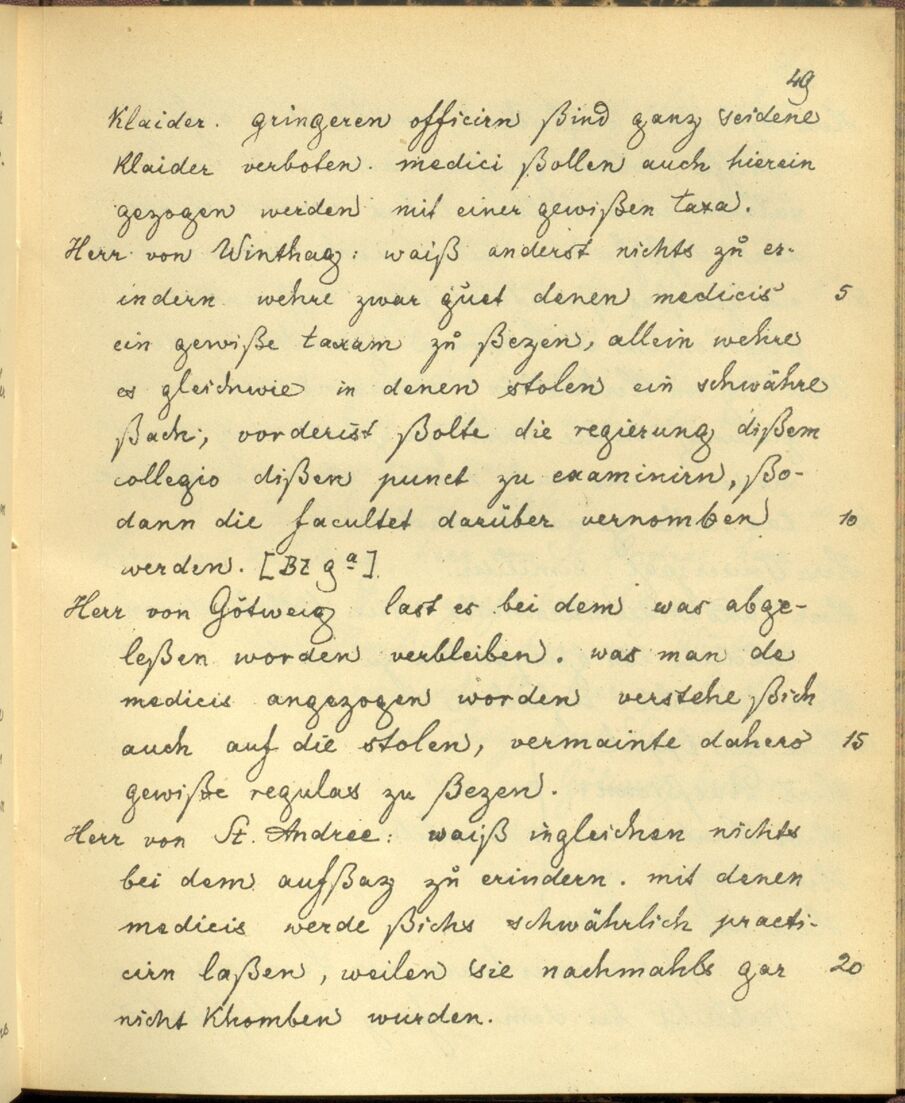 49
Klaider. gringeren officirn ßind ganz seidene
Klaider verboten. medici ßollen auch hierein
gezogen werden mit einer gewißen taxa.
Herr von Winthag: waiß anderst nichts zů er-
indern wehre zwar guet denen medicis 5
ein gewiße taxam zů ßezen, allein wehre
es gleichwie in denen stolen ein schwähre
ßach, vorderist ßolte die regierung dißem
collegio dißen punct zu examinirn, ßo-
dann die facultet darüber vernomben 10
werden. [Bz 9ª]
Herr von Götweig last es bei dem was abge-
leßen worden verbleiben. was man de
medicis angezogen worden verstehe ßich
auch auf die stolen, vermainte dahero 15
gewiße regulas zu ßezen.
Herr von St. Andree: waiß ingleichen nichts
bei dem aufßaz zů erindern. mit denen
medicis werde ßichs schwährlich practi-
cirn laßen, weilen sie nachmahls gar 20
nicht Khomben wurden.